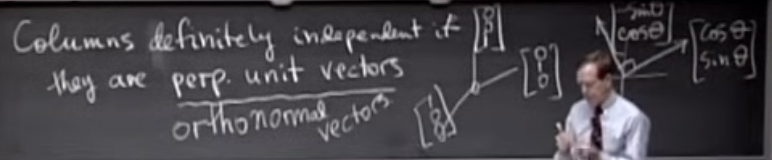 Columns definitely independent if
they are perp. unit vectors
orthonormal vectors
[0 0 1]
[0 1 0]
[1 0 0]
[-sinθ cosθ]
[cosθ sinθ]